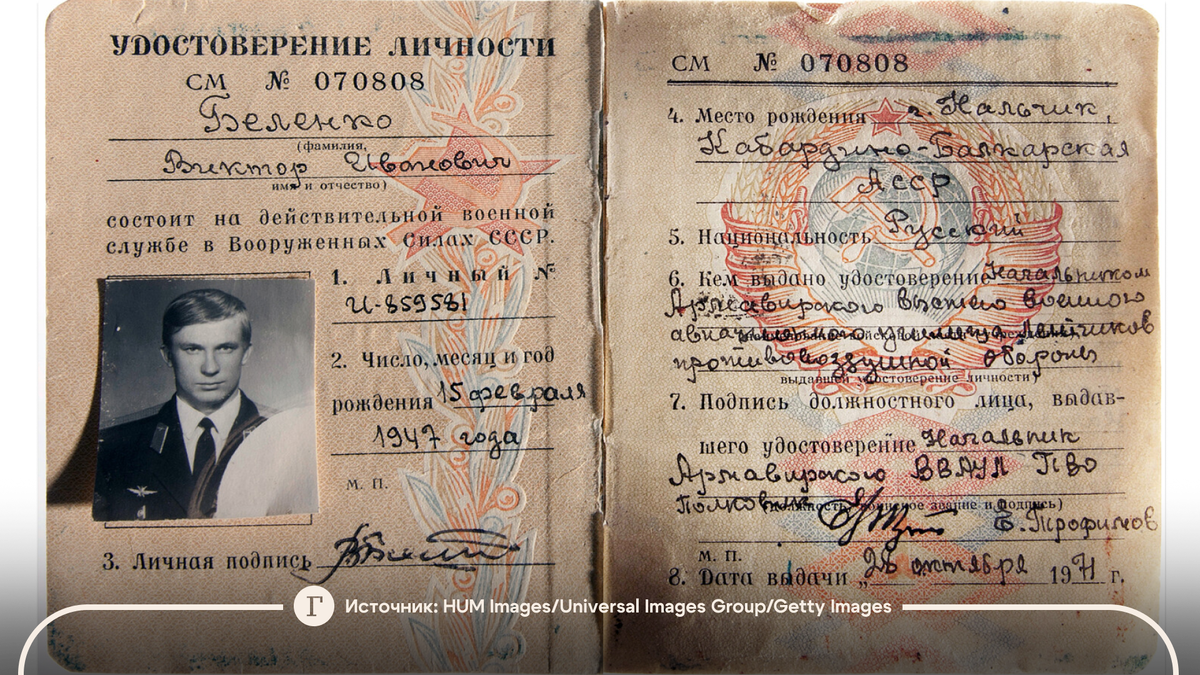 УДОСТОВЕРЕНИЕ ЛИЧНОСТИ
СМ № 070808
Беленко
(фамилия,
Виктор Иванович
имя и отчество)
состоит на действительной военной
службе в Вооруженных Силах СССР.
1. Личный №
И-859581
2. Число, месяц и год
рождения 15 февраля
1947 года
М. П.
3. Личная подпись
СМ № 070808
4. Место рождения г. Нальчик,
Кабардино-Балкарская
АССР
5. Национальность Русский
6. Кем выдано удостоверение Начальником
Армавирского высшего военного
авиационного училища летчиков
противовоздушной обороны
выдавшей удостоверение личности)
7. Подпись должностного лица, выдав-
шего удостоверение Начальник
Армавирского ВВАУЛ ПВО
Полковник Е. Трофимов
(должность, воинское звание и подпись)
М. П.
8. Дата выдачи „28 октября 1971 г.
Г Источник: HUM Images/Universal Images Group/Getty Images